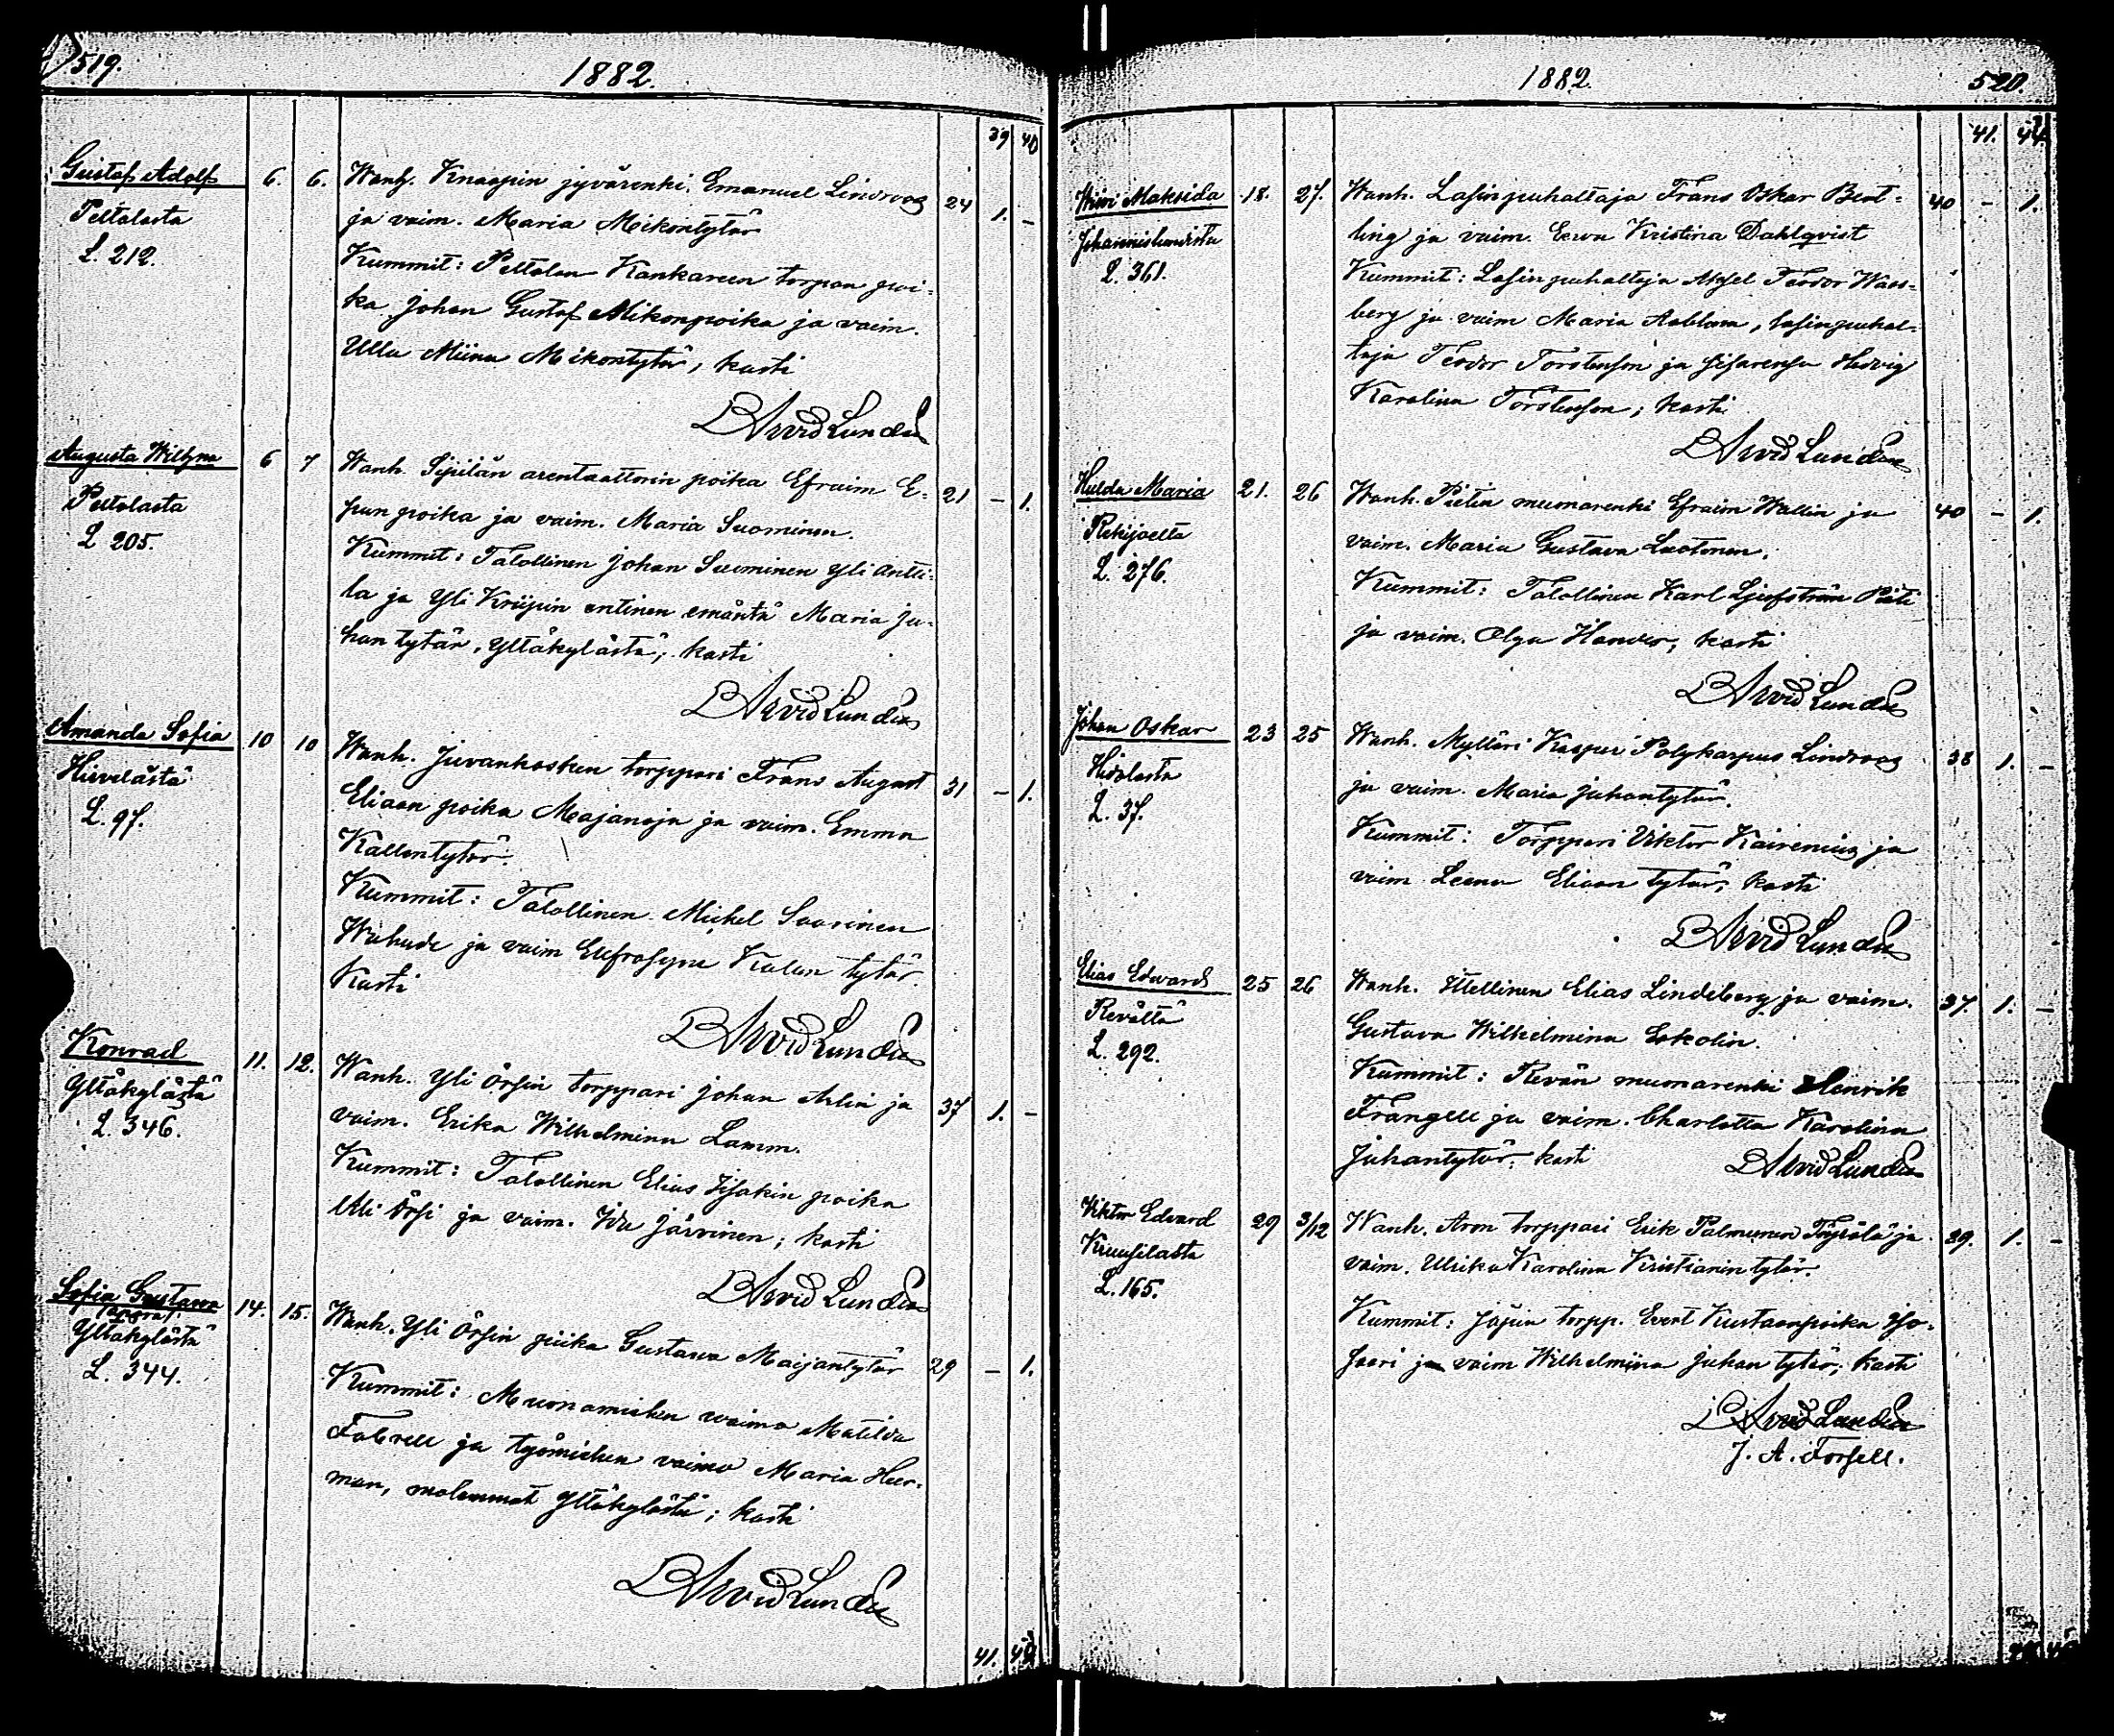 519.
1882.
39 40
Gustaf Adolf 6. 6. Wanh. Knaapin jyvärenki Emanuel Lindroos 24 1. –
Peltolasta ja vaim. Maria Mikontytär
L. 212. Kummit: Peltolan Kankareen torpan poi-
ka Johan Gustaf Mikonpoika ja vaim.
Ulla Miina Mikontytär, kasti
Arvid Lundén
Augusta Wilhma 6 7 Wanh. Sipilän arentaattorin poika Efraim E- 21 – 1.
Peltolasta ja vaim. Maria Suominen.
L 205. Kummit: Talollinen Johan Suominen Yli Antti-
la ja Yli Kriipin entinen emäntä Maria Ju-
hantytär, Yltäkylästä; kasti
Arvid Lundén
Amanda Sofia 10 10 Wanh. Juvankosken torppari Frans August 31 – 1.
Hiivelästä Eliaan poika Majanoja ja vaim. Emma
L. 97. Kallentytär.
Kummit: Talollinen Mickel Saarinen
ja vaim Eufrosyne Kalentytär.
Kasti
Arvid Lundén
Konrad 11. 12. Wanh. Yli Örsin torppari Johan Arlin ja 37 1. –
Yltäkylästä vaim. Erika Wilhelmina Lamm.
L. 346. Kummit: Talollinen Elias Iisakin poika
Yli Örsi ja vaim. Ida Järvinen; kasti
Arvid Lundén
Sofia Gustava 14. 15. Wanh. Yli Örsin piika Gustava Maijantytär 29 – 1.
Yltäkylästä Kummit: Muonamiehen vaimo Matilda
L. 344. Fabrell ja työmiehen vaimo Maria Heer-
man, molemmat Yltäkylästä; kasti
Arvid Lundén
41.
1882.
520.
41.
Maksida 18. 27. Wanh. Lasinpuhaltaja Frans Oskar Bent- 40 – 1.
Johannislundista ling ja vaim. Eeva Kristina Dahlqvist
L. 361. Kummit: Lasinpuhaltaja Aksel Teodor Wass-
berg ja vaim Maria Aablom, lasinpuhal-
taja Teodor Torstenson ja sisarensa Hedvig
Karolina Torstenson; kasti
Arvid Lundén
Hulda Maria 21. 26 Wanh. Pietin muonarenki Efraim Wallin ja 40 – 1.
Rekijoelta vaim. Maria Gustava Luotonen.
L. 276. Kummit: Talollinen Karl Ljufström Pieti
ja vaim. Olga Hander; kasti
Arvid Lundén
Johan Oskar 23 25 Wanh. Mylläri Kasper Polykarpus Lindroos 38 1. –
Hidolasta ja vaim. Maria Juhantytär.
L. 37. Kummit: Torppari Viktor Kairenius ja
vaim Leena Eliaan tytär; kasti
Arvid Lundén
Elias Edvard 25 26 Wanh. Itellinen Elias Lindeberg ja vaim. 37. 1. –
Revältä Gustava Wilhelmina Eskolin.
L. 292. Kummit: Revän muonarenki Henrik
Frangell ja vaim. Charlotta Karolina
Juhantytär; kasti Arvid Lundén
Viktor Edvard 29 3/12 Wanh. Aron torppari Erik Palmunen ja 39. 1. –
Kruusilasta vaim. Ulrika Karolina Kristianin tytär.
L. 165.
Kummit: Jäjän torpp. Evert Kustaanpoika Iso-
saari ja vaim Wilhelmiina Juhan tytär; kasti
Arvid Lundén
J. A. Forsell.